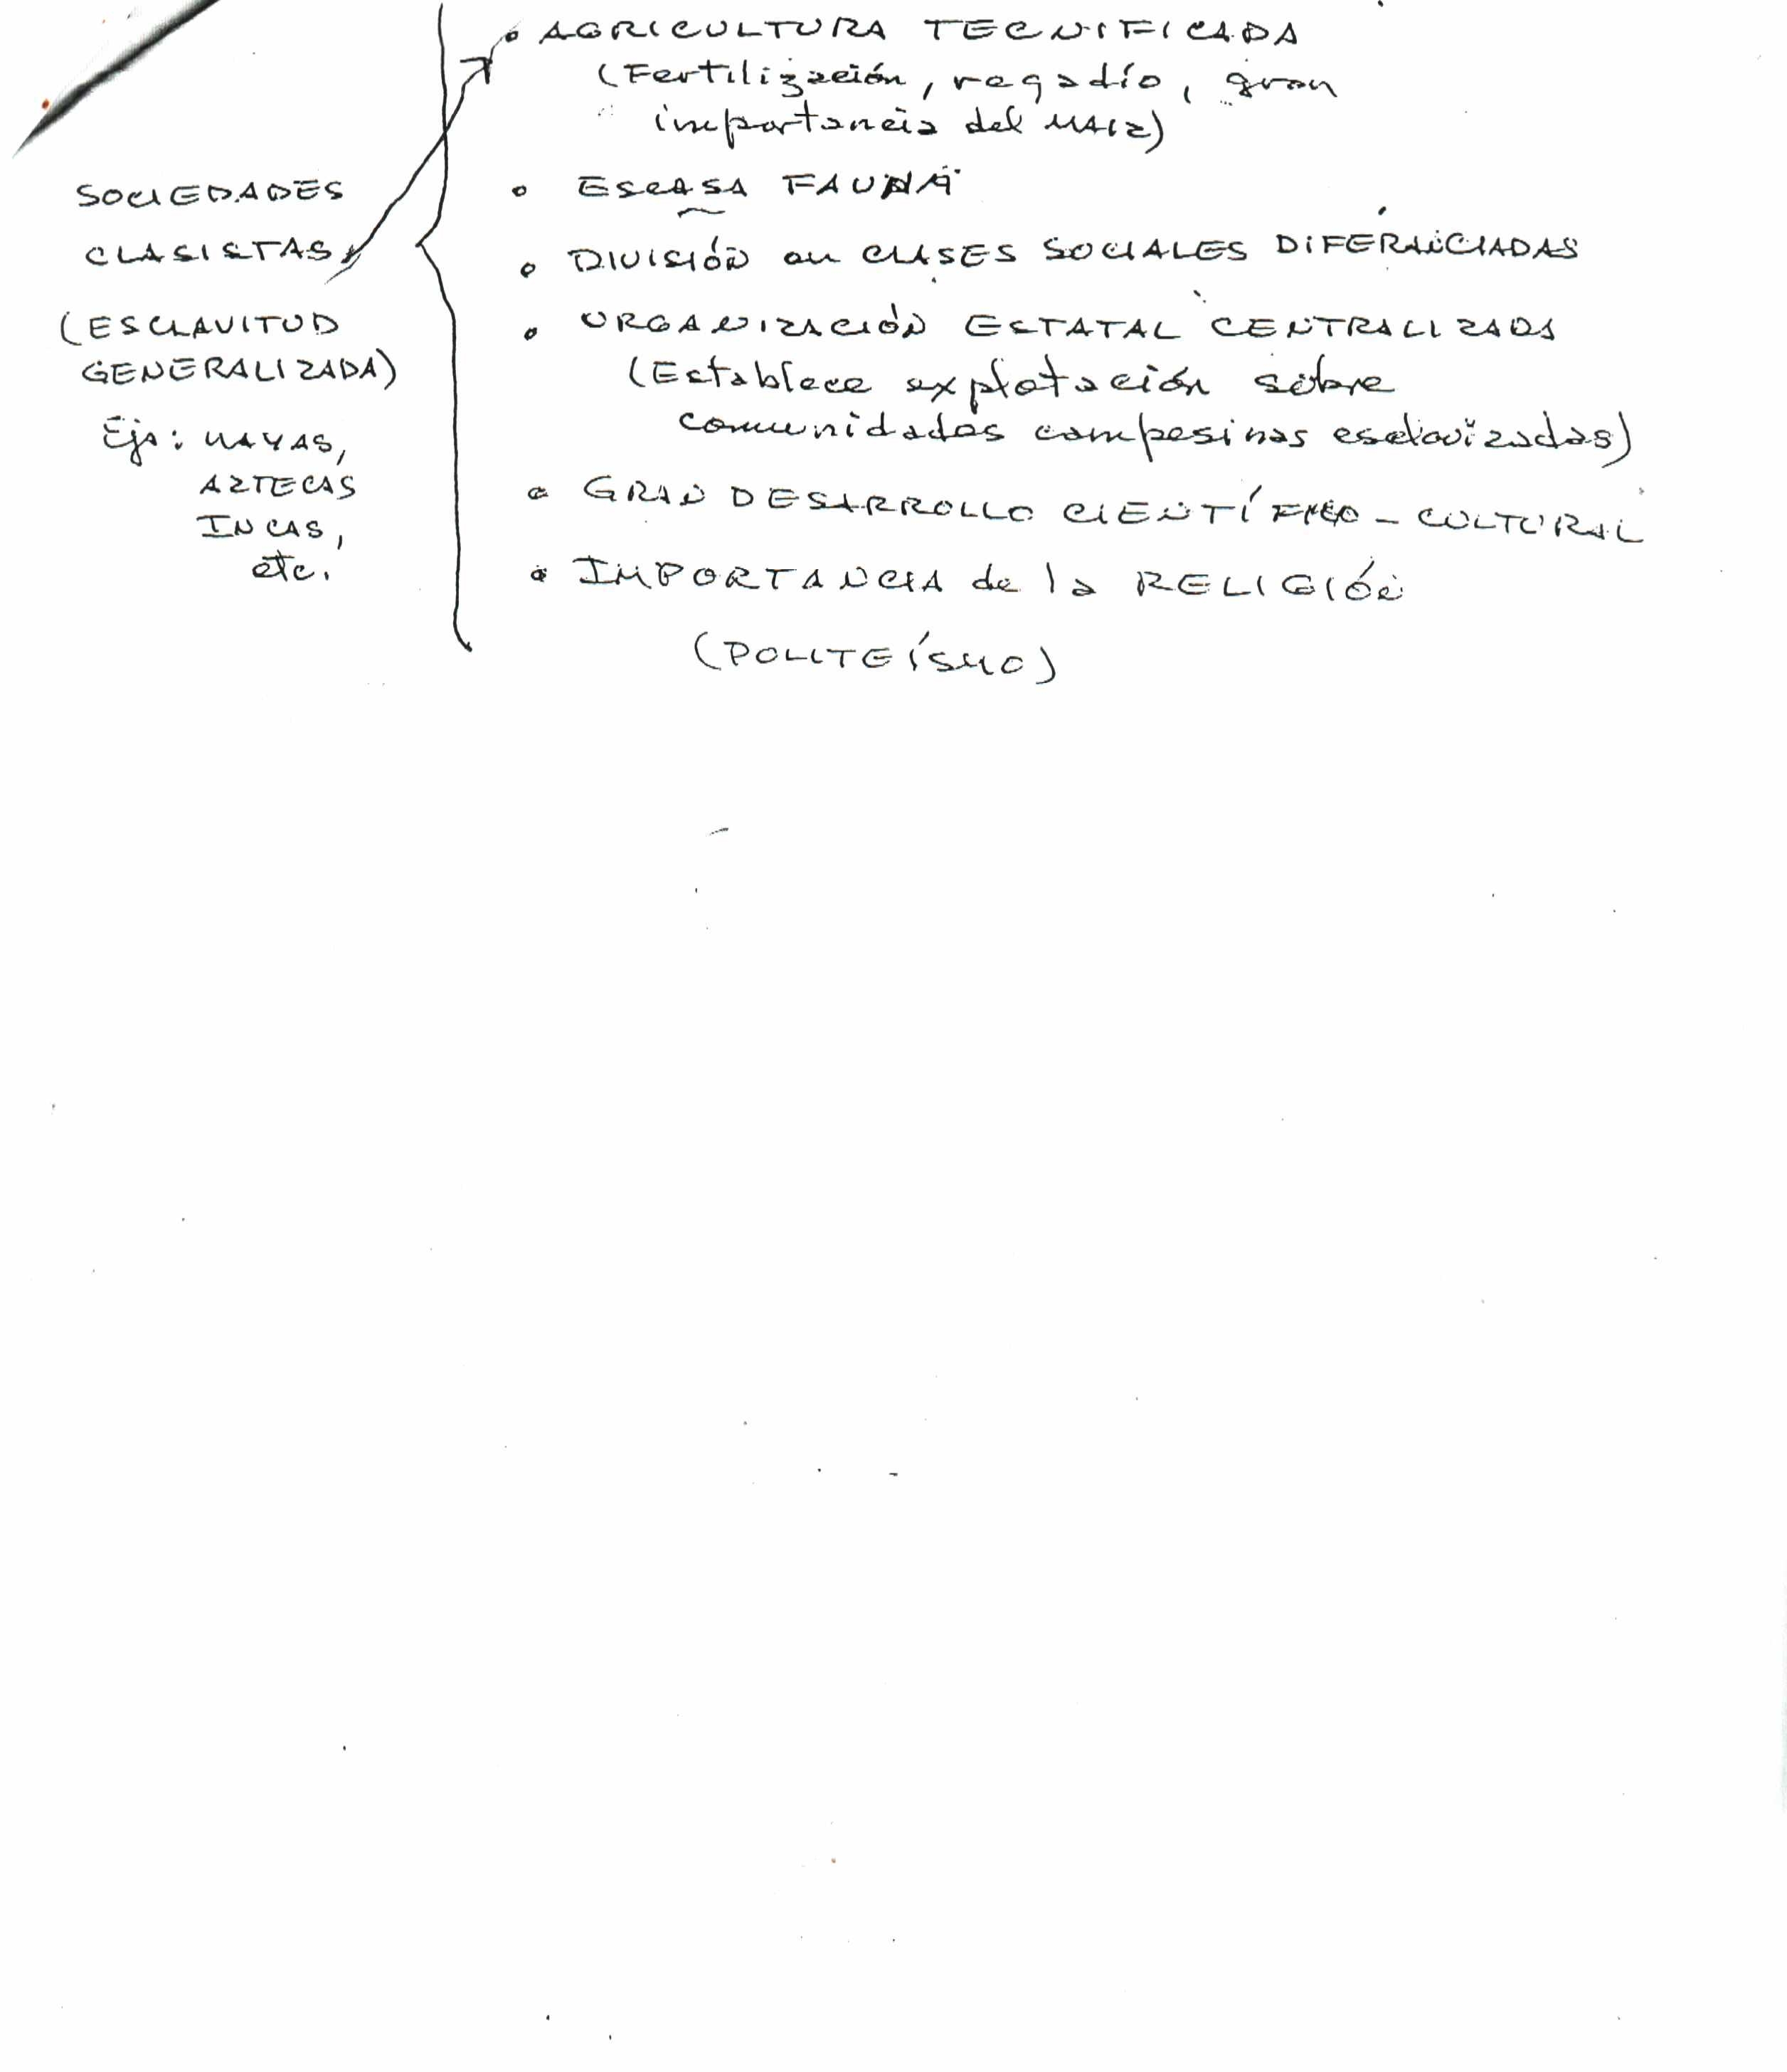 SOCIEDADES
CLASISTAS
(ESCLAVITUD
GENERALIZADA)
Ejs: MAYAS,
AZTECAS
INCAS,
etc.
• AGRICULTURA TECNIFICADA
(Fertilización, regadío, gran
importancia del MAIZ)
• ESCASA FAUNA
• DIVISIÓN en CLASES SOCIALES DIFERENCIADAS
• ORGANIZACIÓN ESTATAL CENTRALIZADA
(Establece explotación sobre
comunidades campesinas esclavizadas)
• GRAN DESARROLLO CIENTÍFICO - CULTURAL
• IMPORTANCIA de la RELIGIÓN
(POLITEÍSMO)